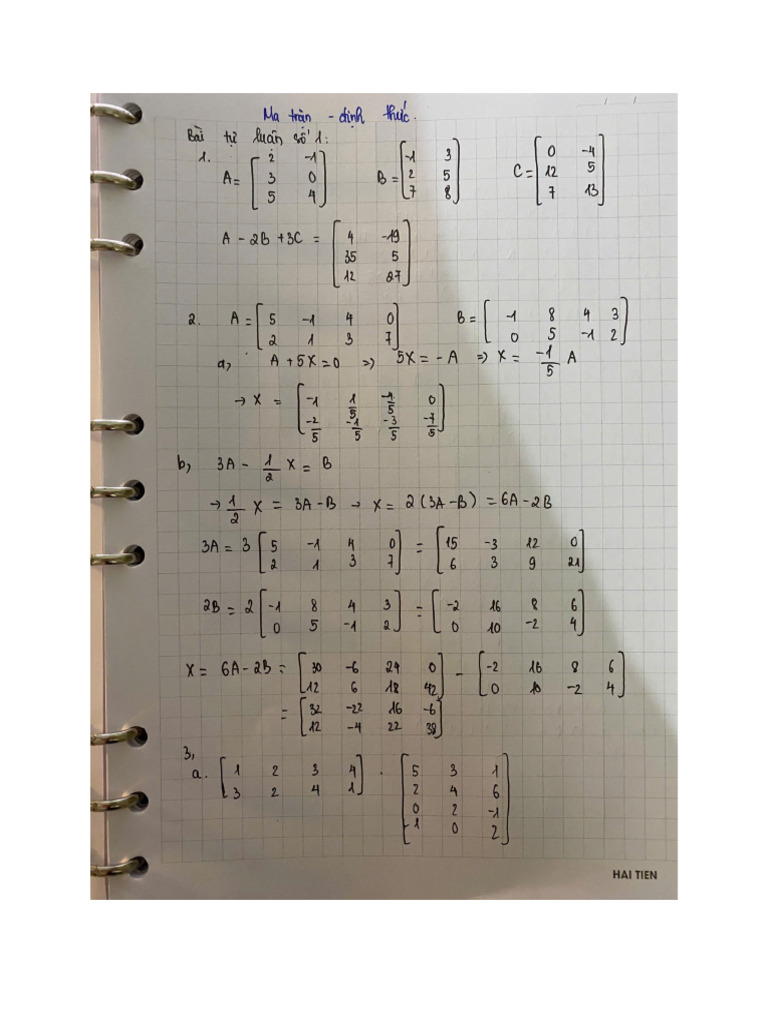 Ma trận - định thức.
Bài tự luận số 1:
1. A = [2 -1; 3 0; 5 4] B = [-1 3; 2 5; 7 8] C = [0 -4; 12 5; 7 13]
A - 2B + 3C = [4 -19; 35 5; 12 27]
2. A = [5 -1 4 0; 2 1 3 7] B = [-1 8 4 3; 0 5 -1 2]
a, A + 5X = 0 => 5X = -A => X = -1/5 A
→ X = [-1 1/5 -4/5 0; -2/5 -1/5 -3/5 -7/5]
b, 3A - 1/2 X = B
→ 1/2 X = 3A - B → X = 2(3A - B) = 6A - 2B
3A = 3 [5 -1 4 0; 2 1 3 7] = [15 -3 12 0; 6 3 9 21]
2B = 2 [-1 8 4 3; 0 5 -1 2] = [-2 16 8 6; 0 10 -2 4]
X = 6A - 2B = [30 -6 24 0; 12 6 18 42] - [-2 16 8 6; 0 10 -2 4]
= [32 -22 16 -6; 12 -4 22 38]
3,
a. [1 2 3 4; 3 2 4 1] . [5 3 1; 2 4 6; 0 2 -1; 1 0 2]
HAI TIEN